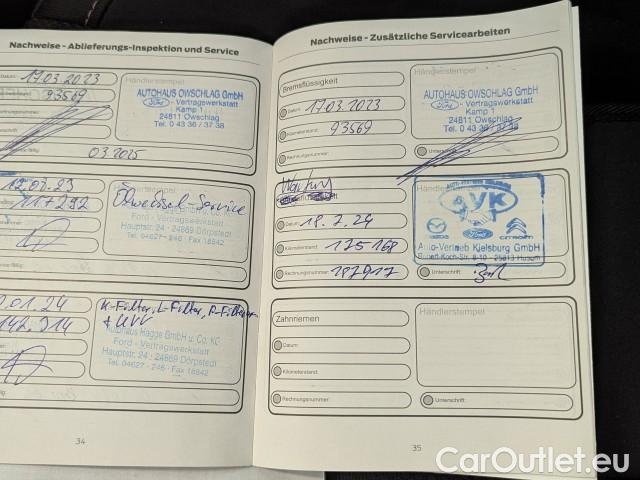 Nachweise - Ablieferungs-Inspektion und Service
Datum:
17.03.2023
93569
03.2025
Händlerstempel
AUTOHAUS OWSCHLAG GmbH
Ford - Vertragswerkstatt
Kamp 1
24811 Owschlag
Tel. 0 43 36 / 37 38
Ölwechsel-Service
Autohaus Hagge GmbH u. Co. KG
Ford - Vertragswerkstatt
Hauptstr. 24 - 24869 Dörpstedt
Tel. 04627 - 246 · Fax 18842
01.24
142.314
K-Filter, L-Filter, P-Filter
Autohaus Hagge GmbH u. Co. KG
Ford - Vertragswerkstatt
Hauptstr. 24 - 24869 Dörpstedt
Tel. 04627 - 246 · Fax 18842
34
Nachweise - Zusätzliche Servicearbeiten
Bremsflüssigkeit
Datum:
17.03.2023
Kilometerstand:
93569
Rechnungsnummer:
Händlerstempel
AUTOHAUS OWSCHLAG GmbH
Ford - Vertragswerkstatt
Kamp 1
24811 Owschlag
Tel. 0 43 36 / 37 38
Unterschrift:
Wartung
Datum:
18.7.24
Kilometerstand:
175168
Rechnungsnummer:
187917
AVK
mazda
Ford
CITROËN
Auto-Vertrieb Kjelsburg GmbH
Robert-Koch-Str. 8-10 - 25813 Husum
Unterschrift:
Zahnriemen
Datum:
Kilometerstand:
Rechnungsnummer:
Händlerstempel
Unterschrift:
35
CarOutlet.eu